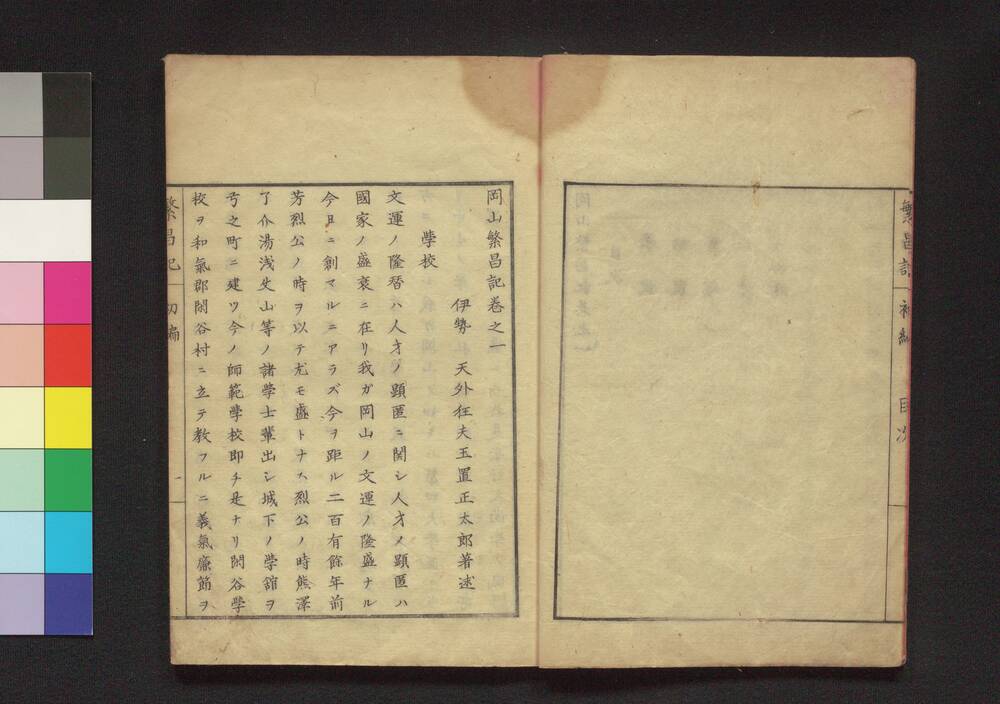 繁昌記 初編 目次
岡山繁昌記卷之一
伊勢 天外狂夫玉置正太郎著述
學校
文運ノ隆替ハ人才ノ顕匿ニ関シ人才ノ顕匿ハ
國家ノ盛衰ニ在リ我ガ岡山ノ文運ノ隆盛ナル
今日ニ創マルニアラズ今ヲ距ル二百有餘年前
芳烈公ノ時ヲ以テ尤モ盛トナス烈公ノ時熊澤
了介湯浅常山等ノ諸學士輩出シ城下ノ學舘ヲ
弓之町ニ建ツ今ノ師範學校即チ是ナリ閑谷學
校ヲ和氣郡閑谷村ニ立テ教フルニ義氣廉節ヲ
繁昌記 初編 一